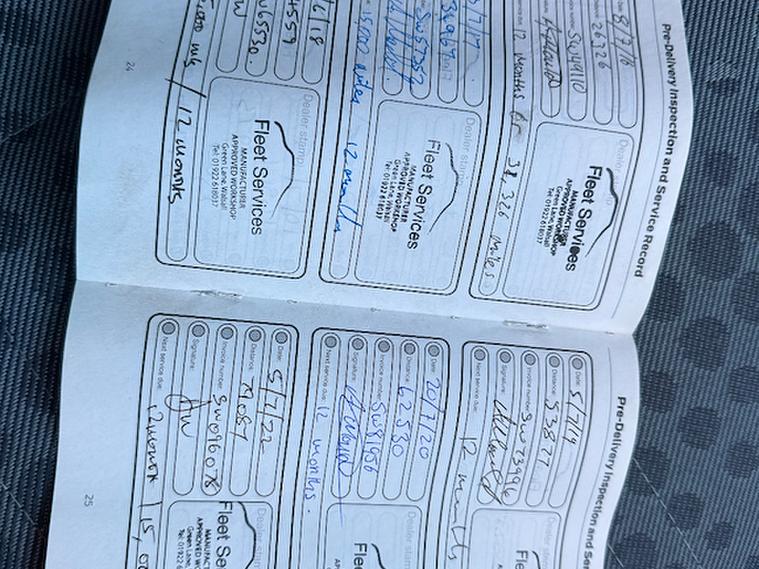 Pre-Delivery Inspection and Service Record
Date: 8/7/16
26326
SW44110
12 months or 38,326 miles
Dealer stamp
Fleet Services
MANUFACTURER
APPROVED WORKSHOP
Green Lane, Walsall
Tel: 01922 618037
/7/17
SW57352
15,000 miles 12 months
Dealer stamp
Fleet Services
MANUFACTURER
APPROVED WORKSHOP
Green Lane, Walsall
Tel: 01922 618037
6/18
4559
W65530
/ 12 months
Dealer stamp
Fleet Services
MANUFACTURER
APPROVED WORKSHOP
Green Lane, Walsall
Tel: 01922 618037
24
Pre-Delivery Inspection and Se
Date: 5/7/19
Distance: 53827
Invoice number:
Signature:
Next service due: 12 months
Dealer stam
Fle
Date: 20/7/20
Distance: 62530
Invoice number: SW81656
Signature:
Next service due: 12 months.
Dealer stam
Fle
AP
Date: 5/7/22
Distance: 79087
Invoice number: SW096078
Signature:
Next service due: 12 months 15,0
Dealer stam
Fleet Se
MANUFACT
APPROVED W
Green Lane,
Tel: 01922 6
25